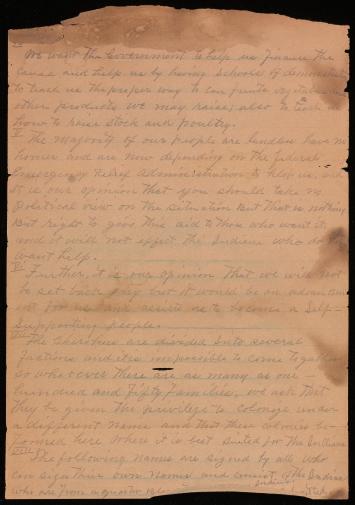 IV
We want the Government to help us finance the
cause and help us by having schools of demonstrat
to teach us the proper way to can fruits vegetables
other products we may raise; also to teach us
how to raise stock and poultry.
V
The majority of our people are landless have no
homes and are now depending on the Federal
Emergency Relief Administration to help us. and
It is our opinion that you should take no
Political view on the situation But that is nothing
But right to give this aid to those who want it
and it will not effect the Indians who do
want help.
VI
Further, it is our opinion that we will not
be set back any but it would be an advance
for us and assist us to become a Self-
Supporting people.
VII
The Cherokees are divided into several
factions and its impossible to come together
So wherever there are as many as one-
hundred and Fifty Families, we ask that
they be given the privilege to colonize under
a different name and that these colonies be
formed here where it is best suited for the Indians
VIII
The following names are signed by all who
can sign their own names and consist of the Indians
who are from a quarter